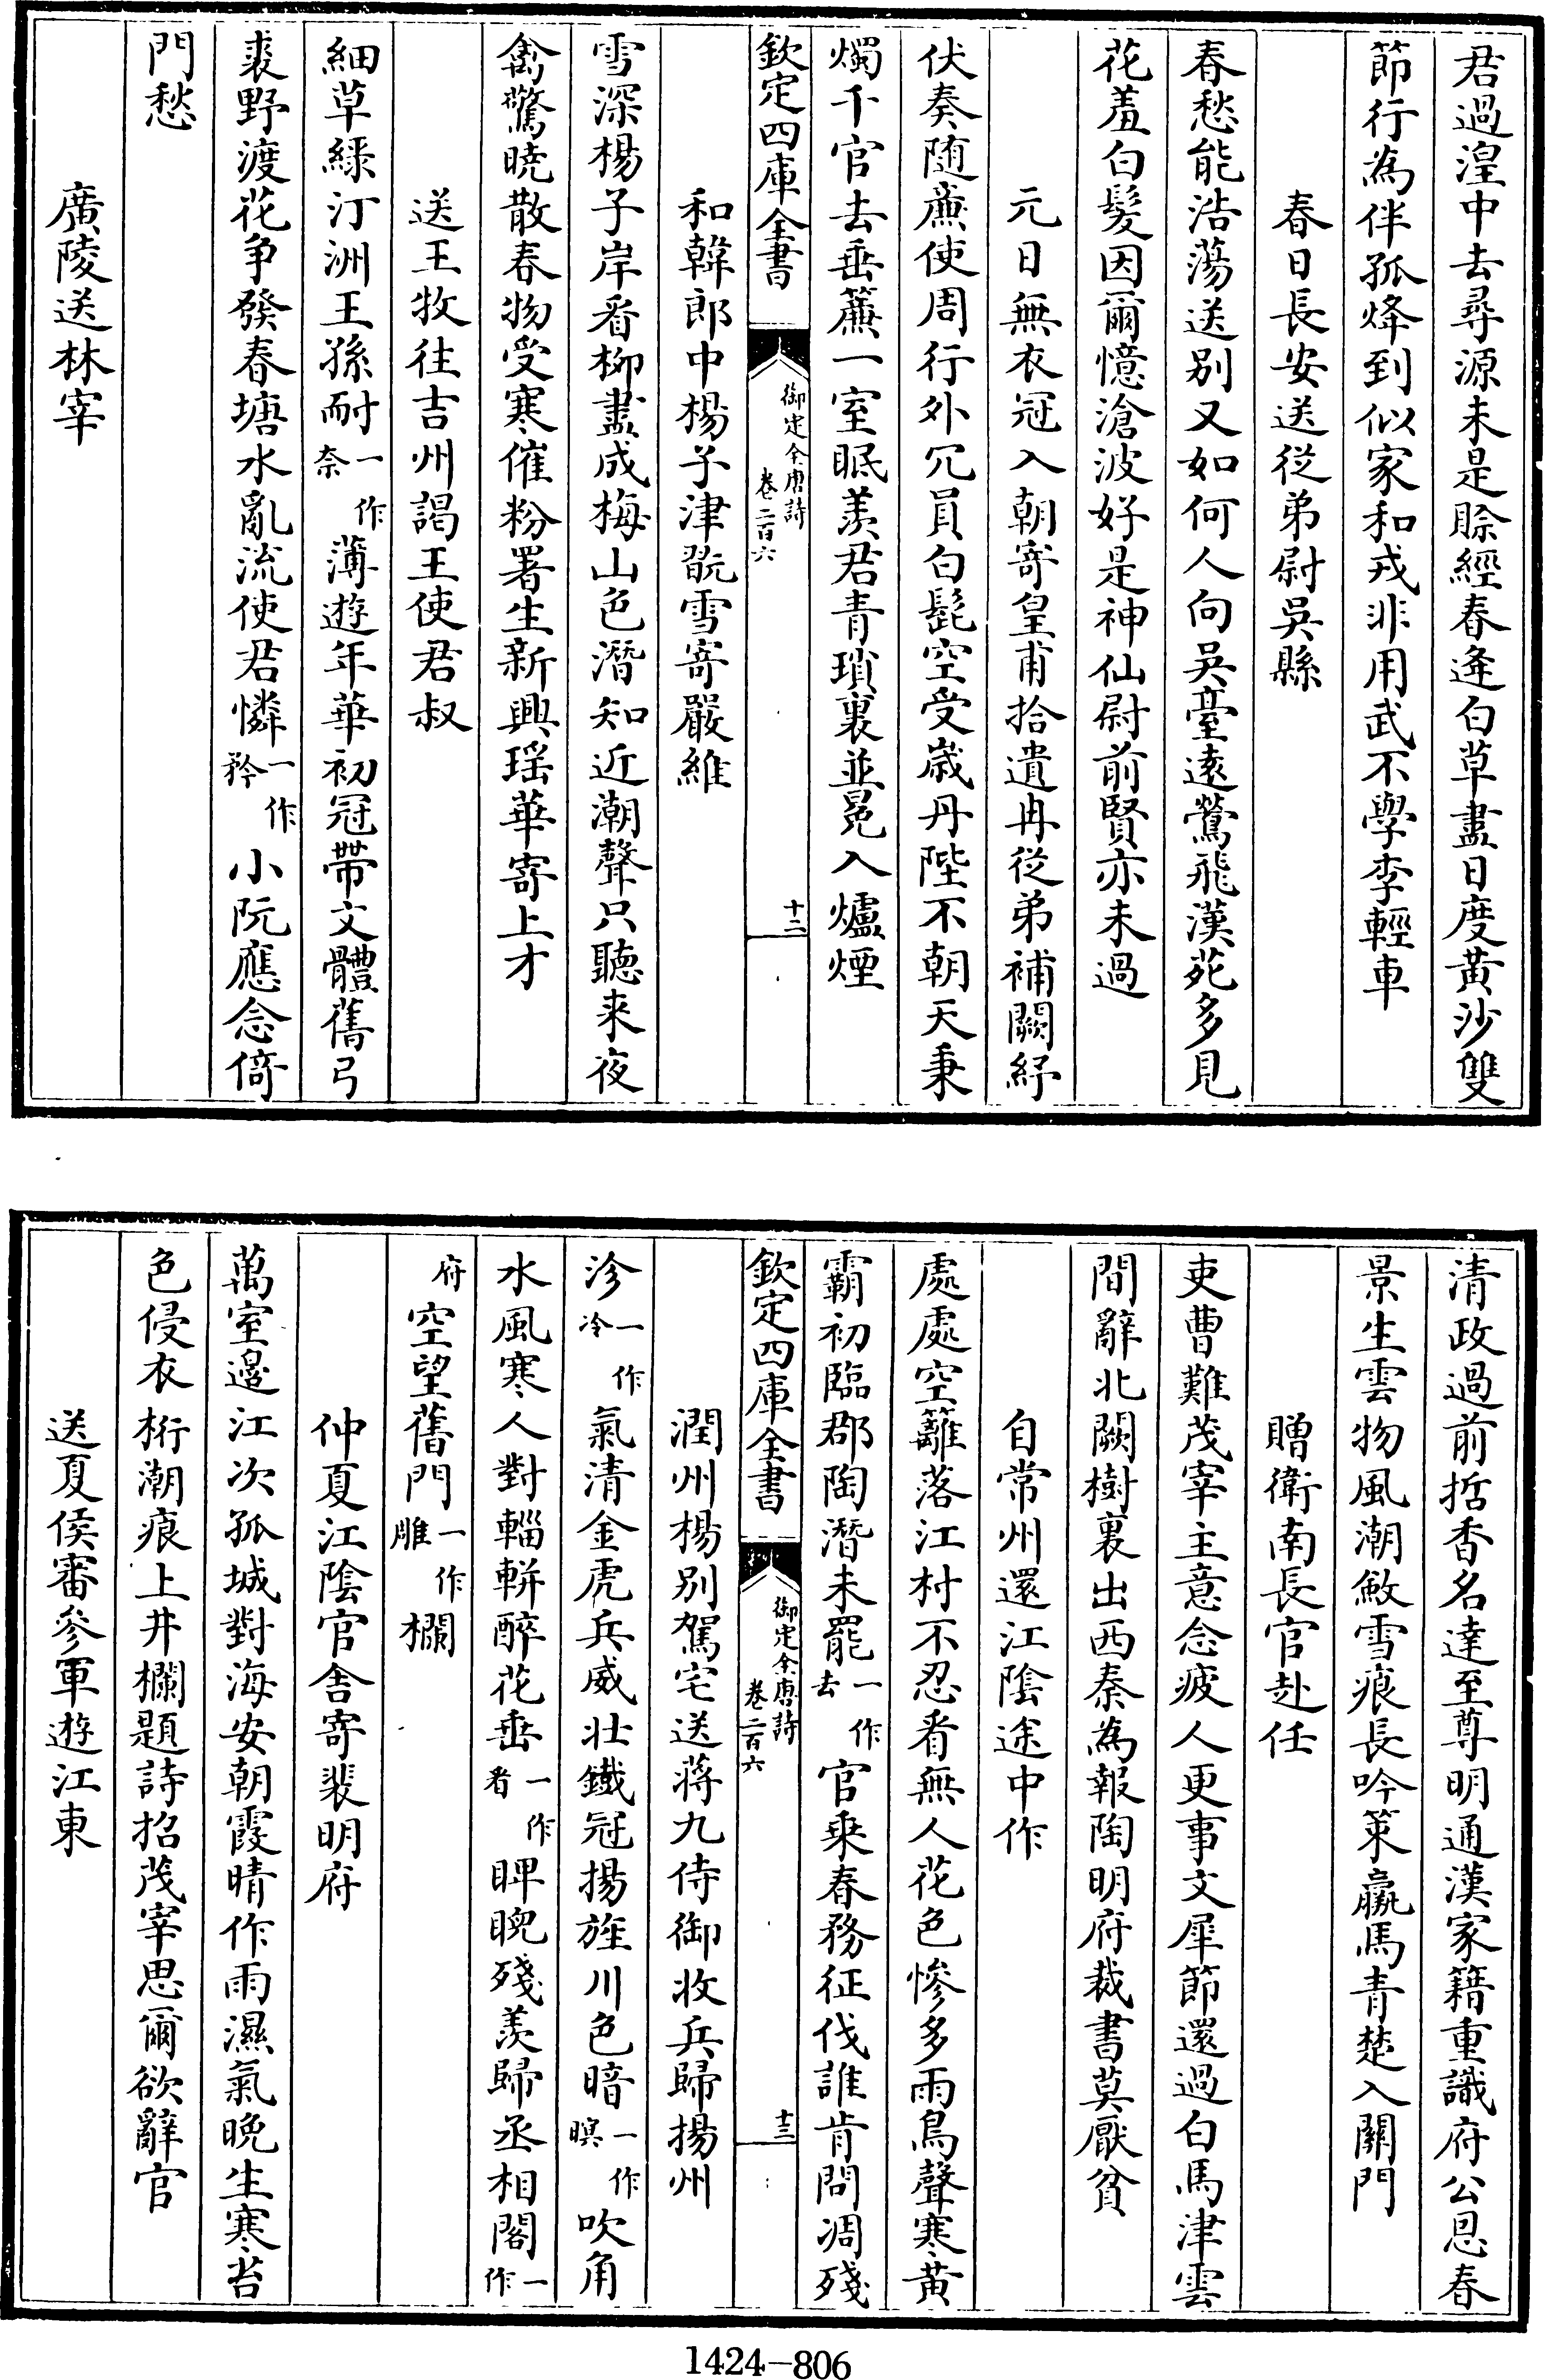 君過湟中去尋源未是賒經春逢白草盡日度黃沙雙
節行為伴孤烽到似家和戎非用武不學李輕車
春日長安送從弟尉吳縣
春愁能浩蕩送別又如何人向吳臺遠鶯飛漢苑多見
花羞白髮因爾憶滄波好是神仙尉前賢亦未過
元日無衣冠入朝寄皇甫拾遺冉從弟補闕紓
伏奏隨廉使周行外冗員白髭空受歲丹陛不朝天秉
燭千官去垂簾一室眠羨君青瑣裏並冕入爐煙
欽定四庫全書
御定全唐詩
卷二百六
十二
和韓郎中楊子津翫雪寄嚴維
雪深楊子岸看柳盡成梅山色潛知近潮聲只聽來夜
禽驚曉散春物受寒催粉署生新興瑤華寄上才
送王牧往吉州謁王使君叔
細草綠汀洲王孫耐一作奈薄遊年華初冠帶文體舊弓
裘野渡花爭發春塘水亂流使君憐一作矜小阮應念倚
門愁
廣陵送林宰
清政過前哲香名達至尊明通漢家籍重識府公恩春
景生雲物風潮斂雪痕長吟策羸馬青楚入關門
贈衛南長官赴任
吏曹難茂宰主意念疲人更事文犀節還過白馬津雲
間辭北闕樹裏出西秦為報陶明府裁書莫厭貧
自常州還江陰途中作
處處空籬落江村不忍看無人花色慘多雨鳥聲寒黃
霸初臨郡陶潛未罷一作去官乘春務征伐誰肯問凋殘
欽定四庫全書
御定全唐詩
卷二百六
十三
潤州楊別駕宅送蔣九侍御收兵歸揚州
沴一作冷氣清金虎兵威壯鐵冠揚旌川色暗一作暝吹角
水風寒人對輜軿醉花垂一作看睥睨殘羨歸丞相閣一作
府空望舊門一作雕欄
仲夏江陰官舍寄裴明府
萬室邊江次孤城對海安朝霞晴作雨濕氣晚生寒苔
色侵衣桁潮痕上井欄題詩招茂宰思爾欲辭官
送夏侯審參軍遊江東
1424-806